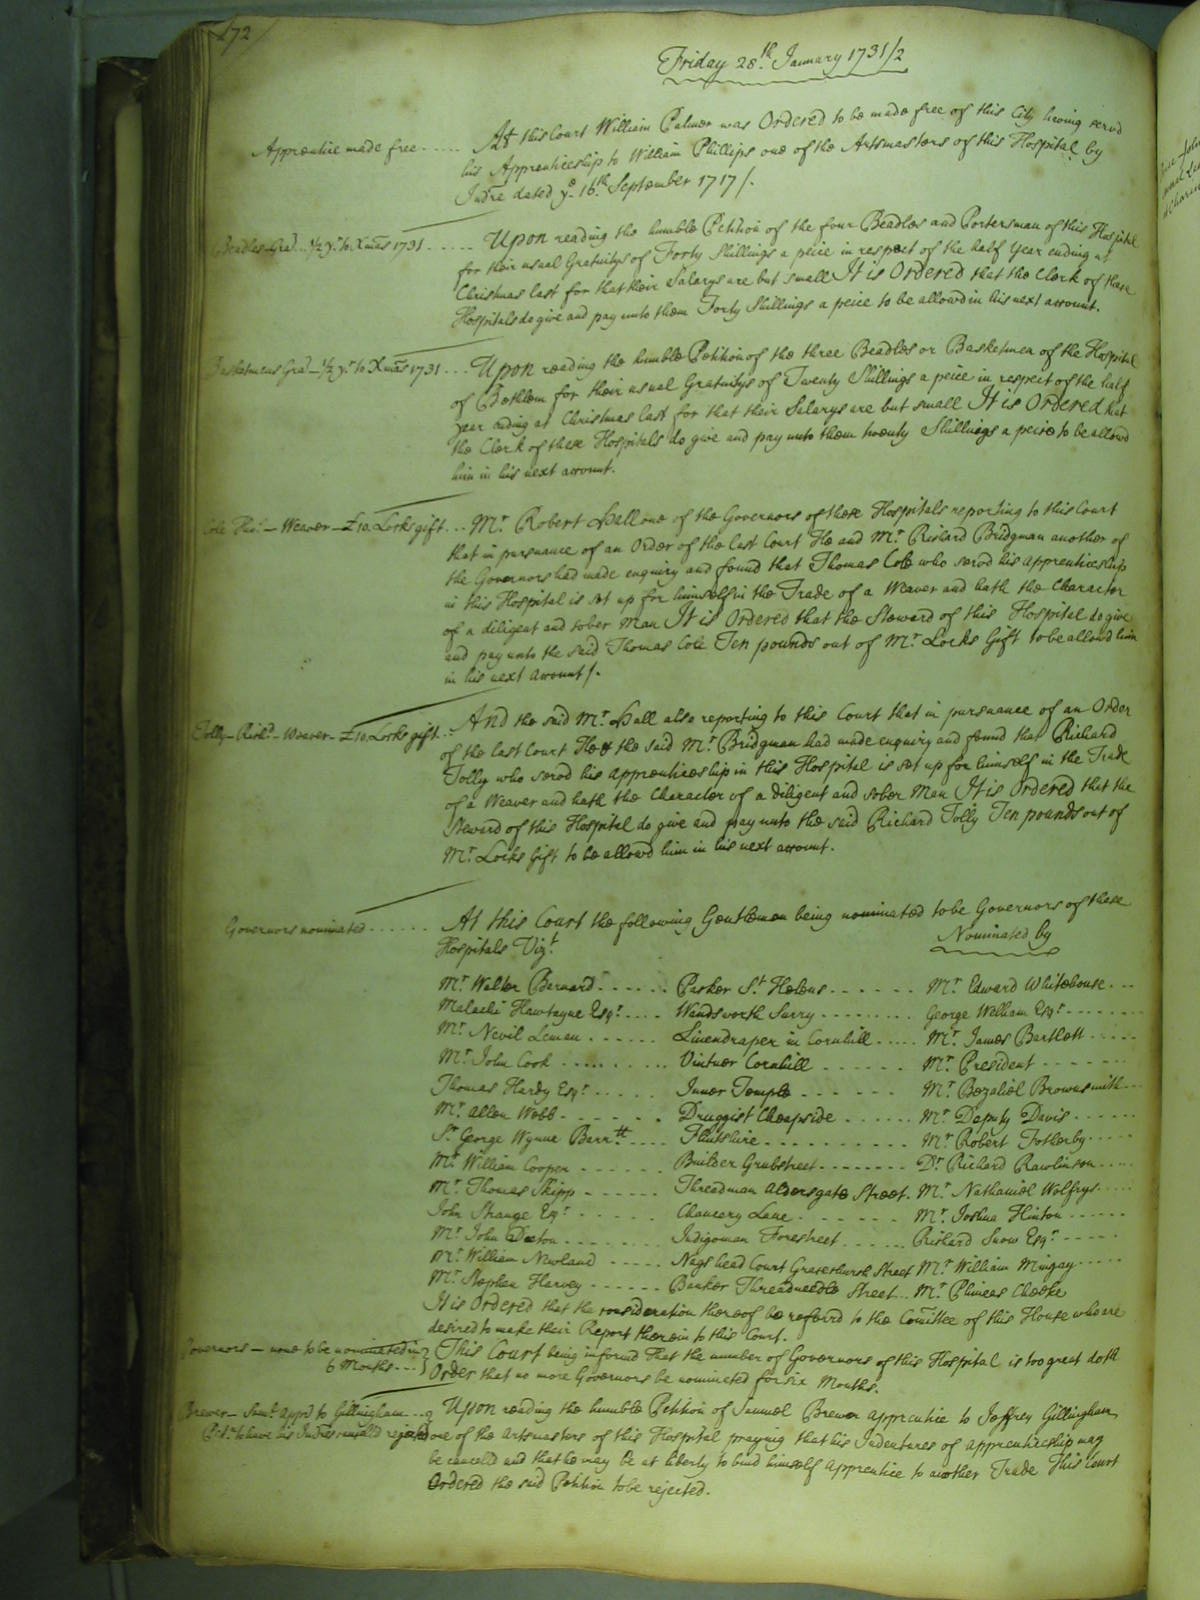 172
Friday 28th January 1731/2
Apprentice made free ..... At this Court William Palmer was Ordered to be made free of this City having servd
his Apprenticeship to William Phillips one of the Artsmasters of this Hospital by
Indre dated ye 16th September 1717/.
Beadles Gra͞d ... ½ yr to Xmas 1731 ..... Upon reading the humble Petition of the four Beadles and Portersman of this Hospital
for their usual Gratuitys of Forty Shillings a peice in respect of the half Year ending at
Christmas last for that their Salarys are but small It is Ordered that the Clerk of these
Hospitals do give and pay unto them Forty Shillings a peice to be allowd in his next account.
Basketmens Gra͞d - ½ yr to Xmas 1731 .... Upon reading the humble Petition of the three Beadles or Basketmen of the Hospital
of Bethlem for their usual Gratuitys of Twenty Shillings a peice in respect of the half
year ending at Christmas last for that their Salarys are but small It is Ordered that
the Clerk of these Hospitals do give and pay unto them twenty Shillings a peice to be allowd
him in his next account.
Cole Thos - Weaver - £10. Locks gift ... Mr Robert Hall one of the Governors of these Hospitals reporting to this Court
that in pursuance of an Order of the last Court He and Mr Richard Bridgman another of
the Governors had made enquiry and found that Thomas Cole who servd his apprenticeship
in this Hospital is set up for himself in the Trade of a Weaver and hath the Character
of a diligent and sober Man It is Ordered that the Steward of this Hospital do give
and pay unto the said Thomas Cole Ten pounds out of Mr Locks Gift to be allowd him
in his next account/.
Jolly - Richd - Weaver - £10. Locks gift .. And the said Mr Hall also reporting to this Court that in pursuance of an Order
of the last Court He & the said Mr Bridgman had made enquiry and found that Richard
Jolly who servd his apprenticeship in this Hospital is set up for himself in the Trade
of a Weaver and hath the Character of a diligent and sober Man It is Ordered that the
Steward of this Hospital do give and pay unto the said Richard Jolly Ten pounds out of
Mr Locks Gift to be allowd him in his next account.
Governors nominated ...... At this Court the following Gentlemen being nominated to be Governors of these
Hospitals Vizt Nominated by
Mr Walter Bernard ...... Parker St Helens ...... Mr Edward Whitehouse ...
Malachi Hawtayne Esqr .... Wandsworth Surry ........ George Wellham Esqr .......
Mr Nevil Leman ...... Linendraper in Cornhill ..... Mr James Bartlett .....
Mr John Cook .......... Vintner Cornhill ...... Mr President .......
Thomas Hardy Esqr ..... Inner Temple ...... Mr Bezaliel Brownsmith ...
Mr Allen Webb ....... Druggist Cheapside ...... Mr Deputy Davis ......
Sr George Wynne Barrtt .... Flintshire .......... Mr Robert Fotherby .....
Mr William Cooper ...... Builder Grubstreet ........ Dr Richard Rawlinson .....
Mr Thomas Skipp ...... Threadman Aldersgate Street . Mr Nathaniel Wolfrys .....
John Strange Esqr ...... Chancery Lane ...... Mr Joshua Hinton ......
Mr John Deeton ........ Indigoman Forestreet ...... Richard Snow Esqr .....
Mr William Newland ..... Nags head Court Gracechurch Street Mr William Mingay .....
Mr Stephen Harvey ...... Banker Threadneedle Street ... Mr Phineas Cheeke
It is Ordered that the consideration thereof be referrd to the Comittee of this House who are
desired to make their Report therein to this Court.
Governors - none to be nominated in This Court being informd That the number of Governors of this Hospital is too great doth
6 Months ... Order that no more Governors be nominated for six Months.
Brewer - Saml Apprd to Gillingham ... Upon reading the humble Petition of Samuel Brewer apprentice to Jeffrey Gillingham
Petn to have his Indres cancelld rejected one of the Artsmasters of this Hospital praying that his Indentures of apprenticeship may
be cancelld and that he may be at liberty to bind himself apprentice to another Trade This Court
Ordered the said Petition to be rejected.